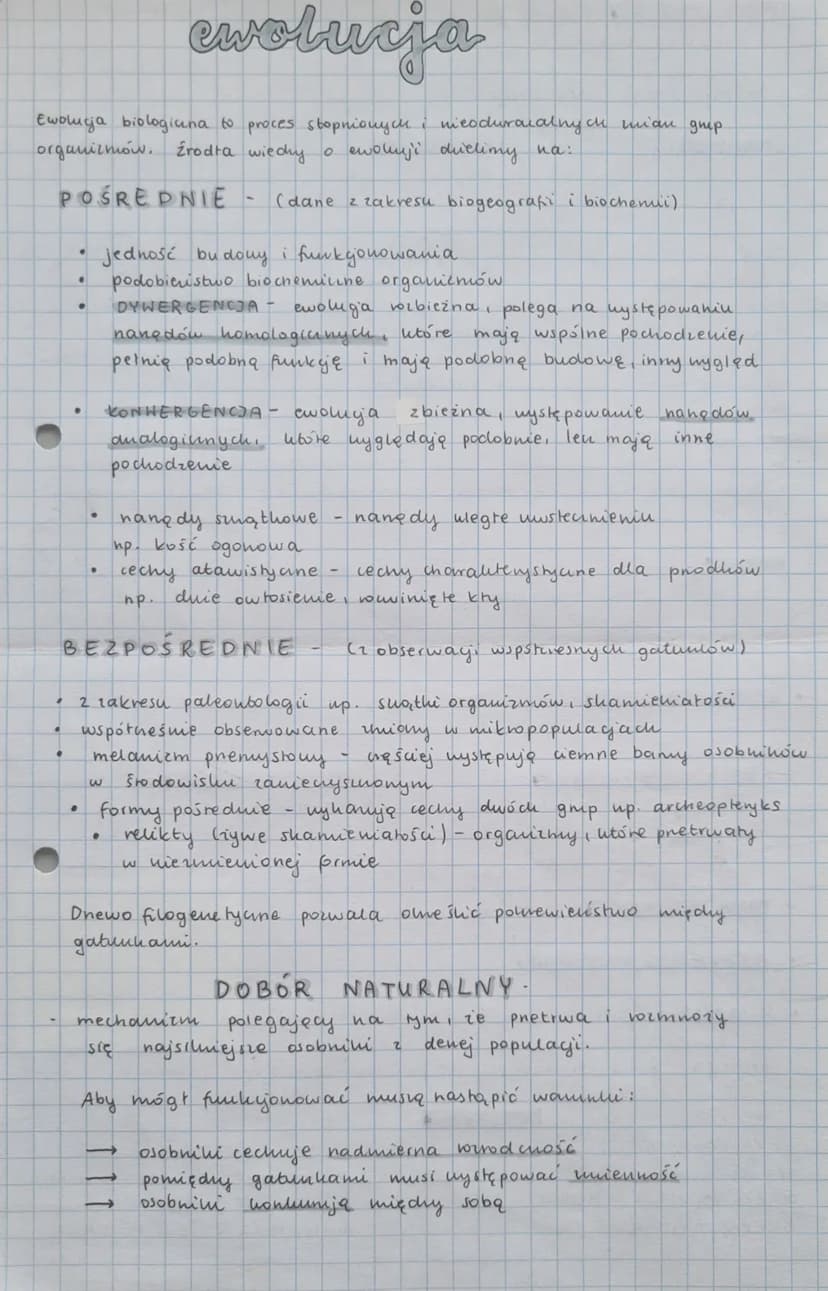 ewolucja
Ewolucja biologiczna to proces stopniowych i nieodwracalnych zmian grup
organizmów. Źródła wiedzy o ewolucji dzielimy na:
POŚREDNIE - (dane z zakresu biogeografi i biochemii)
• jedność budowy i funkcjonowania
• podobieństwo biochemiczne organizmów
• DYWERGENCJA - ewolucja rozbieżna, polega na występowaniu
narzędów homologicznych, które mają wspólne pochodzenie,
pełnią podobną funkcję i mają podobną budowę, inny wygląd
• KONWERGENCJA - ewolucja zbieżna, występowanie narzędów
analogicznych, które wyglądają podobnie, lecz mają inne
pochodzenie
• narzędy szczątkowe - narzędy uległe uwstecznieniu
np. kość ogonowa
• cechy atawistyczne - cechy charakterystyczne dla przodków
np. duże owłosienie, rozwinięte kły
BEZPOŚREDNIE - (z obserwacji współczesnych gatunków)
• z zakresu paleontologii np. szczątki organizmów, skamieniałości
• współcześnie obserwowane zmiany w mikropopulacjach
• melanizm przemysłowy - częściej występują ciemne barwy osobników
w środowisku zanieczyszczonym
• formy pośrednie - wykazują cechy dwóch grup np. archeopteryks
• relikty (żywe skamieniałości) - organizmy, które przetrwały
w niezmienionej formie
Drzewo filogenetyczne pozwala określić pokrewieństwo między
gatunkami.
DOBÓR NATURALNY.
- mechanizm polegający na tym, że przetrwa i rozmnoży
się najsilniejsze osobniki z danej populacji.
Aby mógł funkcjonować muszą nastąpić warunki:
→ osobniki cechuje nadmierna rozrodczość
→ pomiędzy gatunkami musi występować zmienność
→ osobniki konkurują między sobą